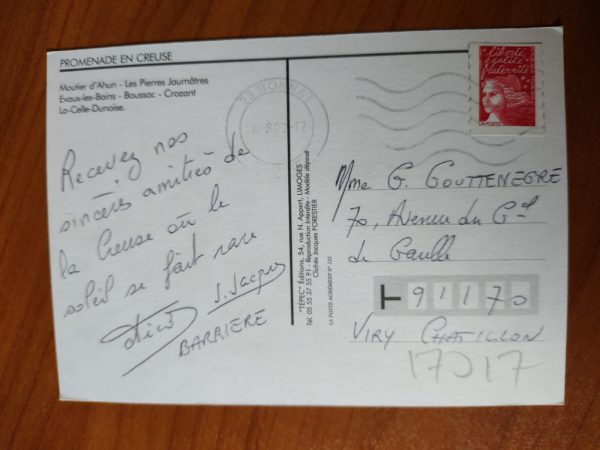 PROMENADE EN CREUSE
Moutier d'Ahun - Les Pierres Jaumâtres
Evaux-les-Bains - Boussac - Crozant
La-Celle-Dunoise.
Recevez nos
sincères amitiés de
la Creuse où le
soleil se fait rare
J. Jacques
BARRIERE
"TÉPEC" Éditions, 54, rue N. Appert, LIMOGES
Tél. 05 55 37 55 91 - Reproduction Interdite - Modèle déposé
Clichés Jacques FORESTIER
LA POSTE AGRÉMENT N° 125
23 BONNAT
liberté
égalité
fraternité
LA POSTE
Mme G. GOUTTENEGRE
70, Avenue du Gal
de Gaulle
91170
VIRY CHATILLON